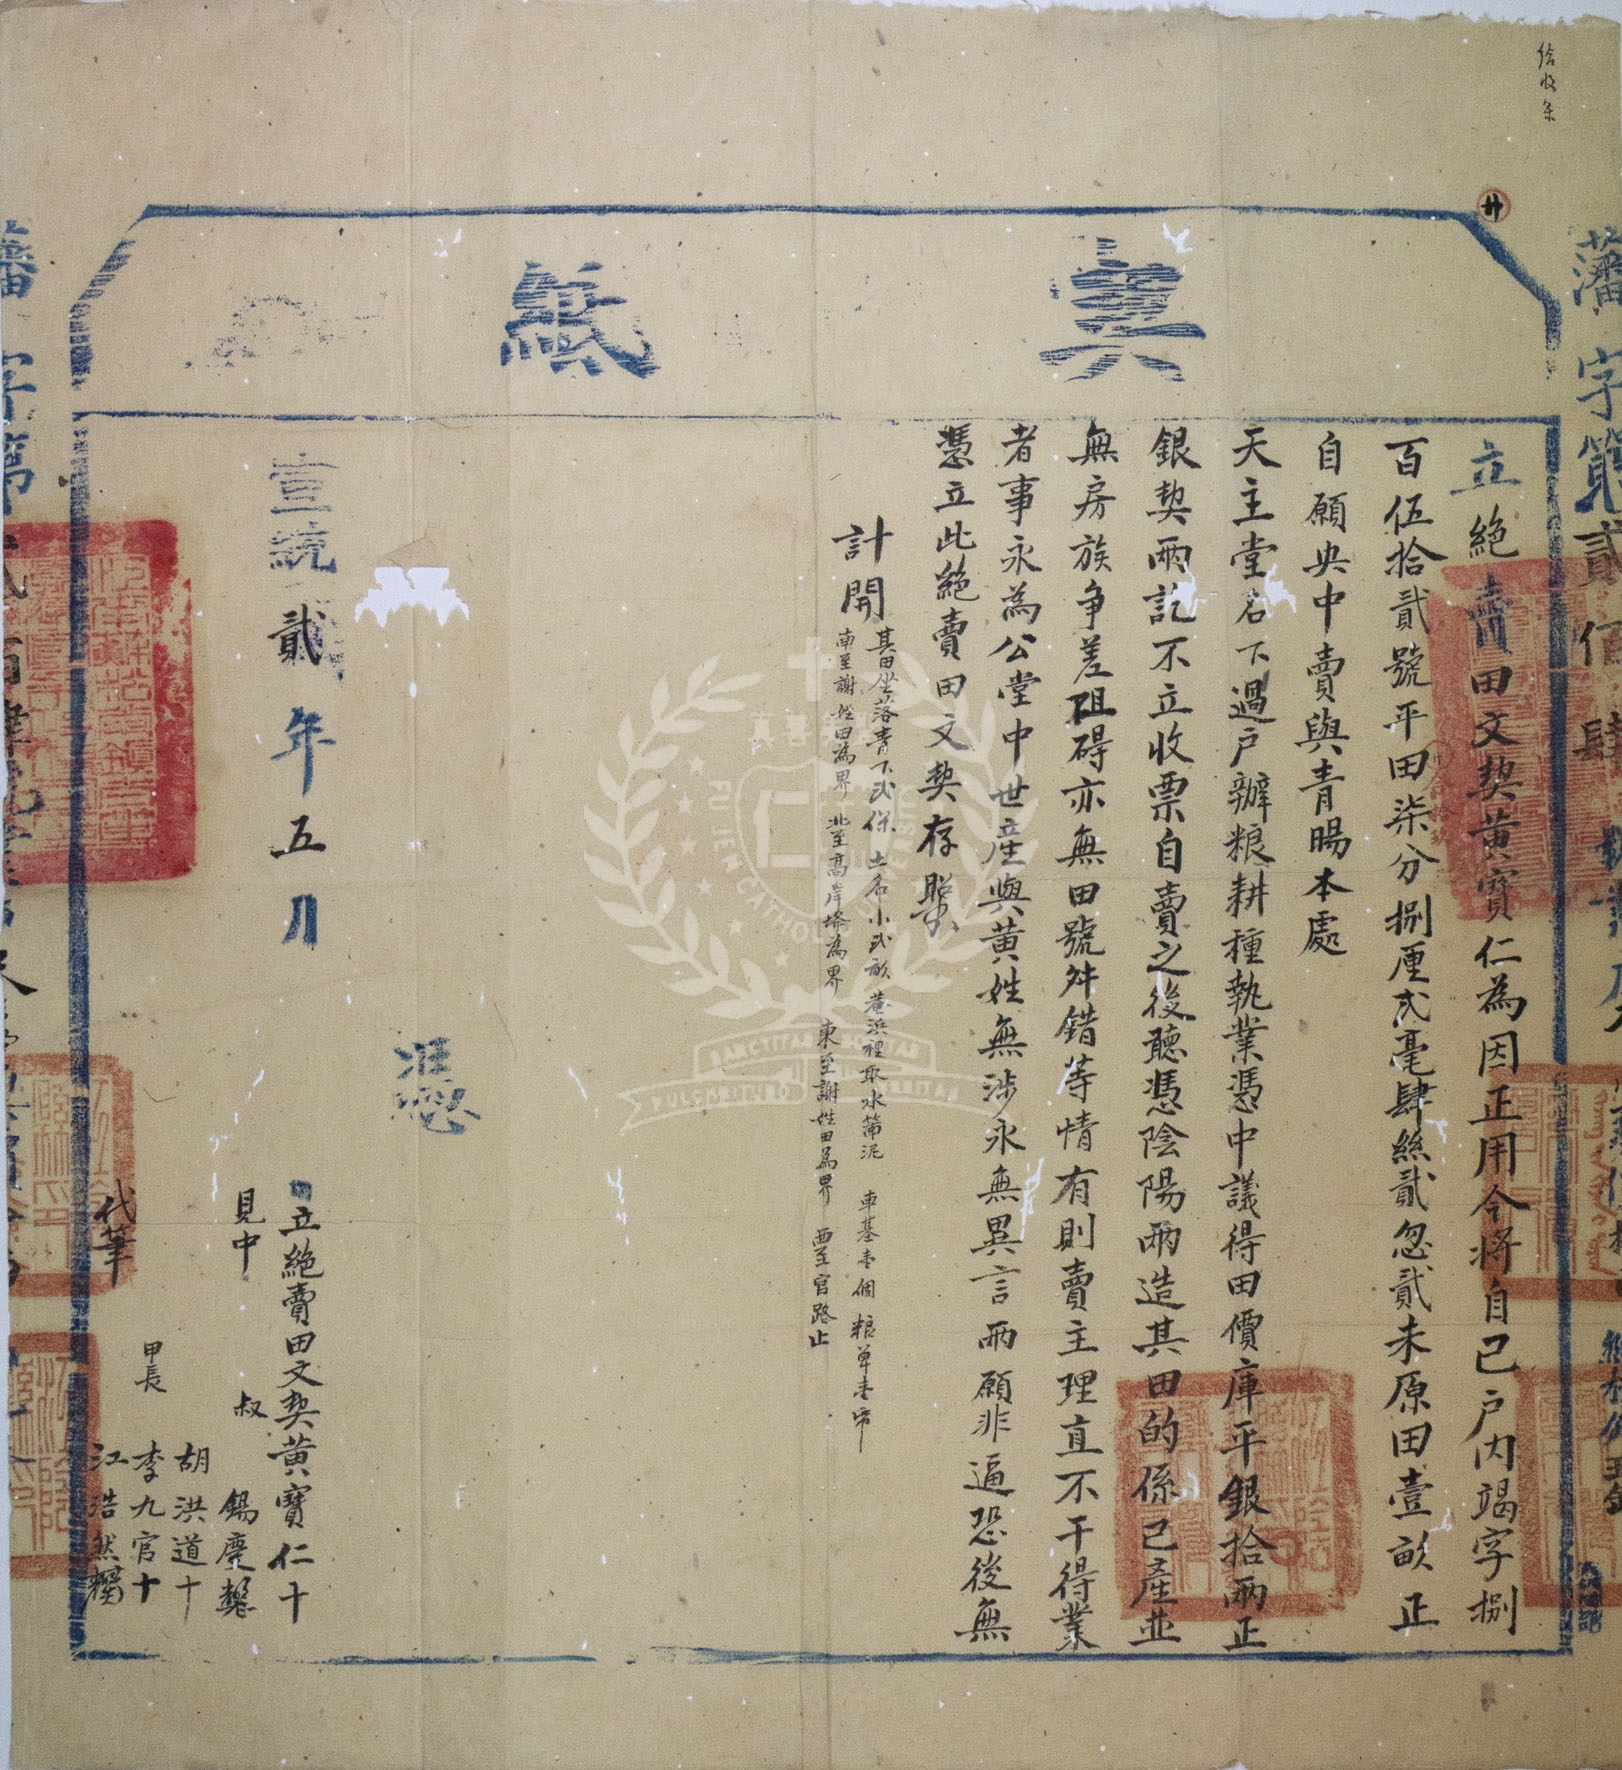 給收条
契紙
立絕賣田文契黃寶仁為因正用今將自己戶內竭字捌
百伍拾貳號平田柒分捌厘弍毫肆絲貳忽貳未原田壹畝正
自願央中賣與青暘本處
天主堂名下過戶辦粮耕種執業憑中議得田價庫平銀拾兩正
銀契兩訖不立收票自賣之後聽憑陰陽兩造其田的係己產並
無房族爭差阻碍亦無田號舛錯等情有則賣主理直不干得業
者事永為公堂中世產與黃姓無涉永無異言兩願非逼恐後無
憑立此絕賣田文契存照
計開
其田坐落青下弍保 土名小弍畝 巷浜裡取水罱泥 車基壹個 粮单壹帋
南至謝姓田為界 北至高岸塔為界 東至謝姓田為界 西至官路止
宣統貳年五月
憑
立絕賣田文契黃寶仁十
見中 叔 錫慶
胡洪道十
甲長 李九官十
代筆 江浩然
藩字第貳佰肆
藩字第